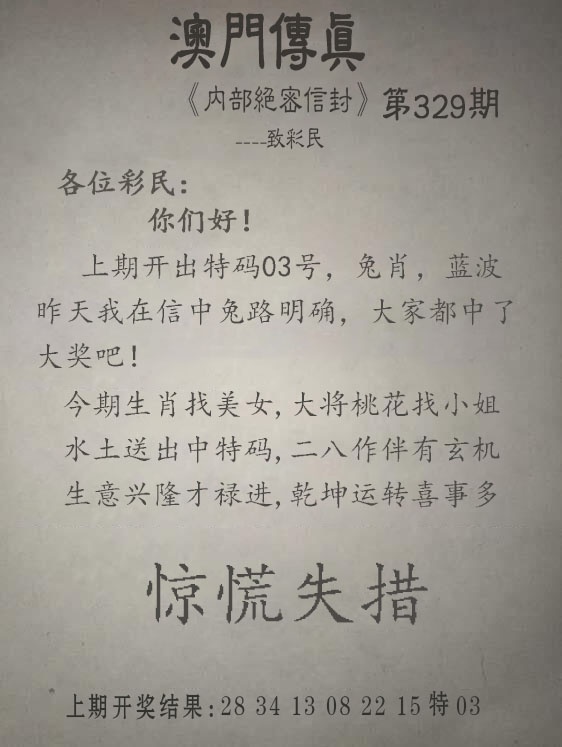 澳門傳眞
《内部絕密信封》第329期
----致彩民
各位彩民：
你们好！
上期开出特码03号，兔肖，蓝波
昨天我在信中兔路明确，大家都中了
大奖吧！
今期生肖找美女,大将桃花找小姐
水土送出中特码,二八作伴有玄机
生意兴隆才禄进,乾坤运转喜事多
惊慌失措
上期开奖结果:28 34 13 08 22 15特03